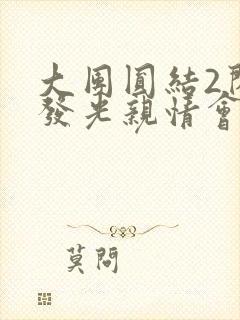 大團圓結2
發光親情會
莫問